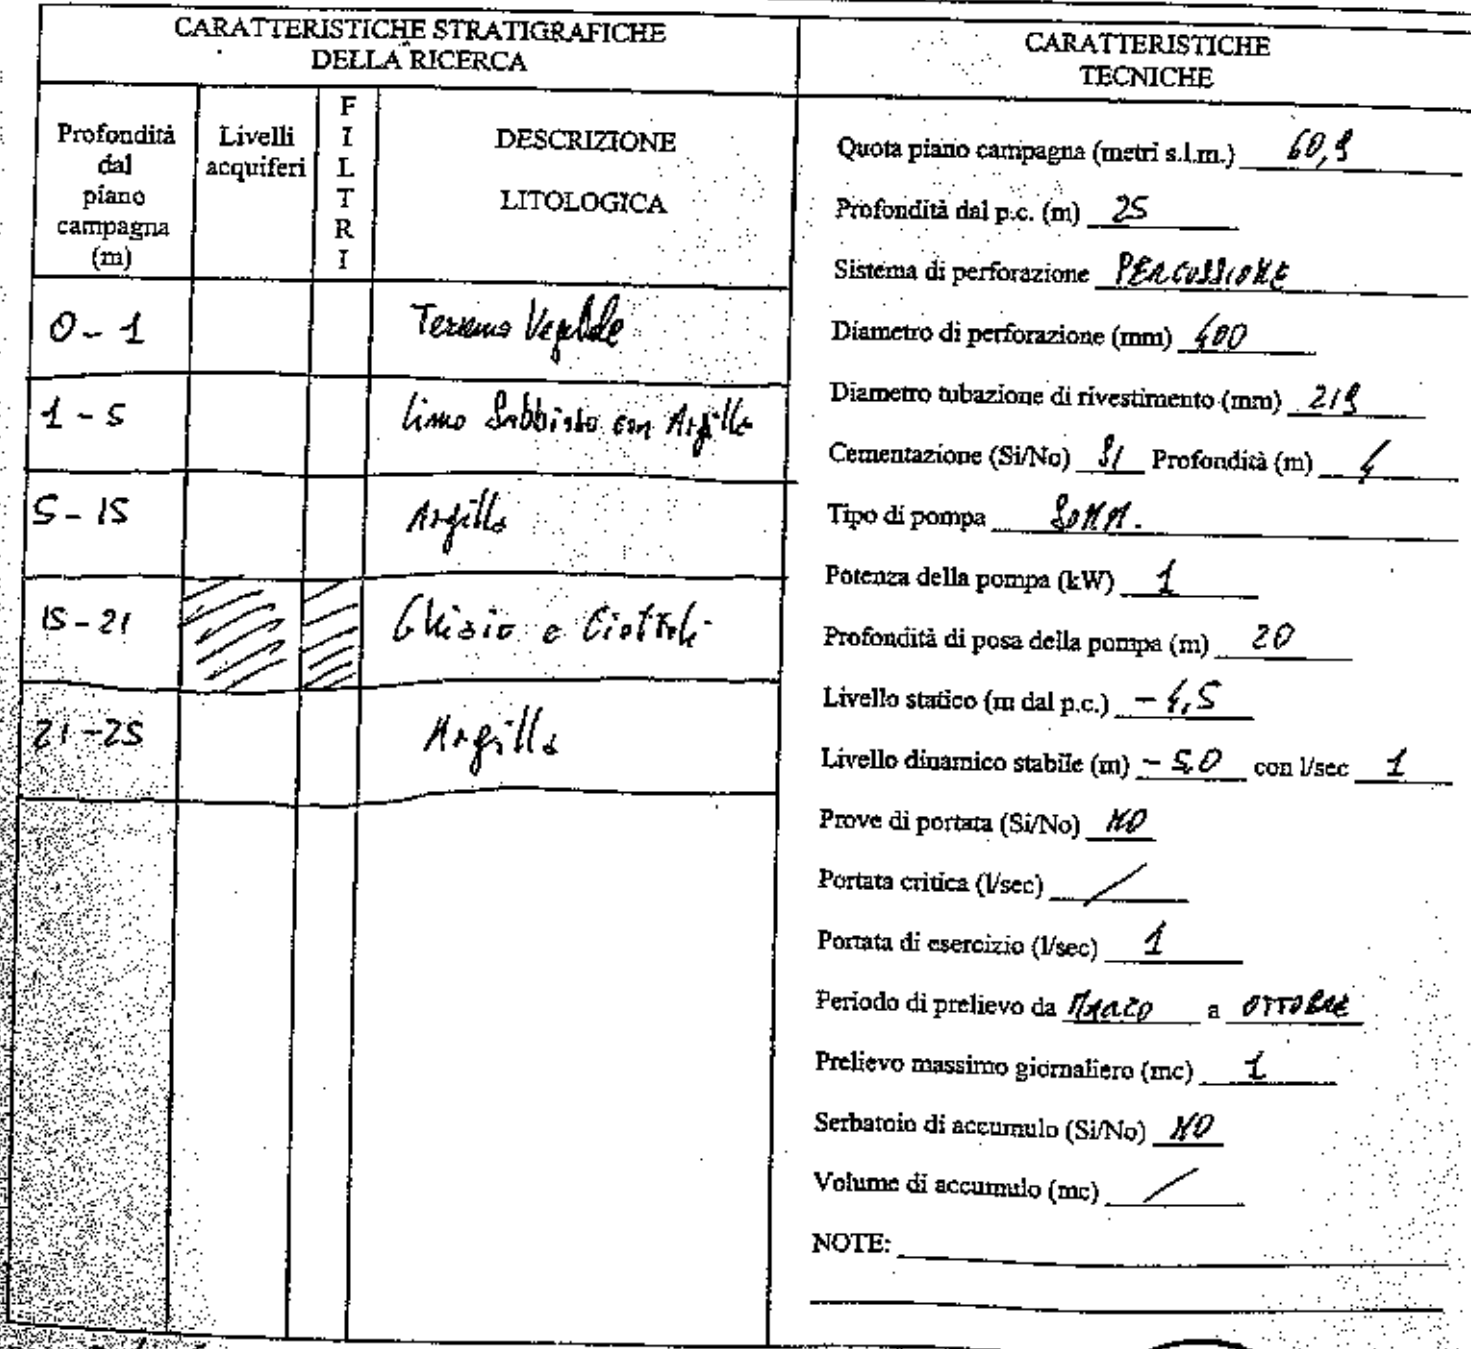 CARATTERISTICHE STRATIGRAFICHE
DELLA RICERCA
Profondità
dal
piano
campagna
(m)
Livelli
acquiferi
F
I
L
T
R
I
DESCRIZIONE
LITOLOGICA
0 - 1 Terreno Vegetale
1 - 5 Limo Sabbioso con Argilla
5 - 15 Argilla
15 - 21 Ghiaia e Ciottoli
21 - 25 Argilla
CARATTERISTICHE
TECNICHE
Quota piano campagna (metri s.l.m.) 60,9
Profondità dal p.c. (m) 25
Sistema di perforazione PERCUSSIONE
Diametro di perforazione (mm) 400
Diametro tubazione di rivestimento (mm) 219
Cementazione (Si/No) SI Profondità (m) 4
Tipo di pompa SOMM.
Potenza della pompa (kW) 1
Profondità di posa della pompa (m) 20
Livello statico (m dal p.c.) - 4,5
Livello dinamico stabile (m) - 5,0 con l/sec 1
Prove di portata (Si/No) NO
Portata critica (l/sec) /
Portata di esercizio (l/sec) 1
Periodo di prelievo da MARZO a OTTOBRE
Prelievo massimo giornaliero (mc) 1
Serbatoio di accumulo (Si/No) NO
Volume di accumulo (mc) /
NOTE: